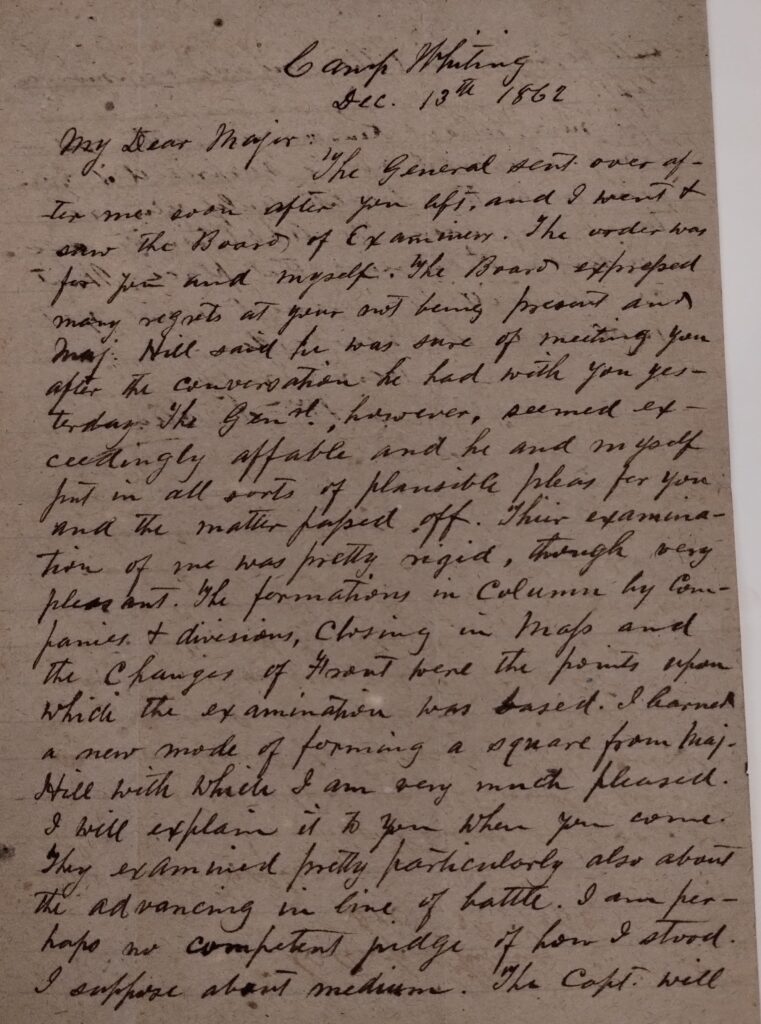 Camp Whiting
Dec. 13th 1862
My Dear Major
The General sent over af-
ter me soon after you left, and I went &
saw the Board of Examiners. The order was
for you and myself. The Board expressed
many regrets at your not being present and
Maj. Hill said he was sure of meeting you
after the conversation he had with you yes-
terday. The Genrl., however, seemed ex-
ceedingly affable and he and myself
put in all sorts of plausible pleas for you
and the matter passed off. Their examina-
tion of me was pretty rigid, though very
pleasant. The formations in Column by Com-
panies & divisions, Closing in Mass and
the Changes of Front were the points upon
which the examination was based. I learned
a new mode of forming a square from Maj.
Hill with which I am very much pleased.
I will explain it to you when you come.
They examined pretty particularly also about
the advancing in line of battle. I am per-
haps no competent judge of how I stood.
I suppose about medium. The Capt. will